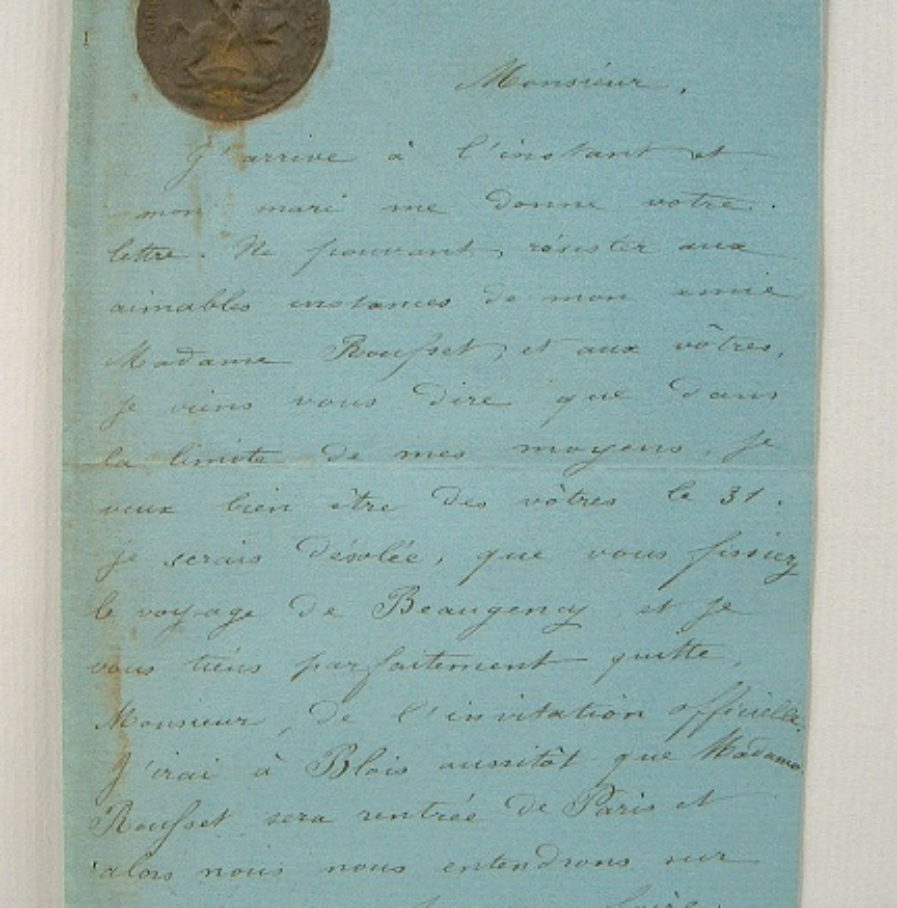 Monsieur,
J'arrive à l'instant et
mon mari me donne votre
lettre. Ne pouvant résister aux
aimables instances de mon amie
Madame Rousset, et aux vôtres,
je viens vous dire que dans
la limite de mes moyens, je
veux bien être des vôtres le 31.
Je serais désolée, que vous fissiez
le voyage de Beaugency, et je
vous tiens parfaitement quitte,
Monsieur, de l'invitation officielle.
J'irai à Blois aussitôt que Madame
Rousset sera rentrée de Paris et
alors nous nous entendrons sur